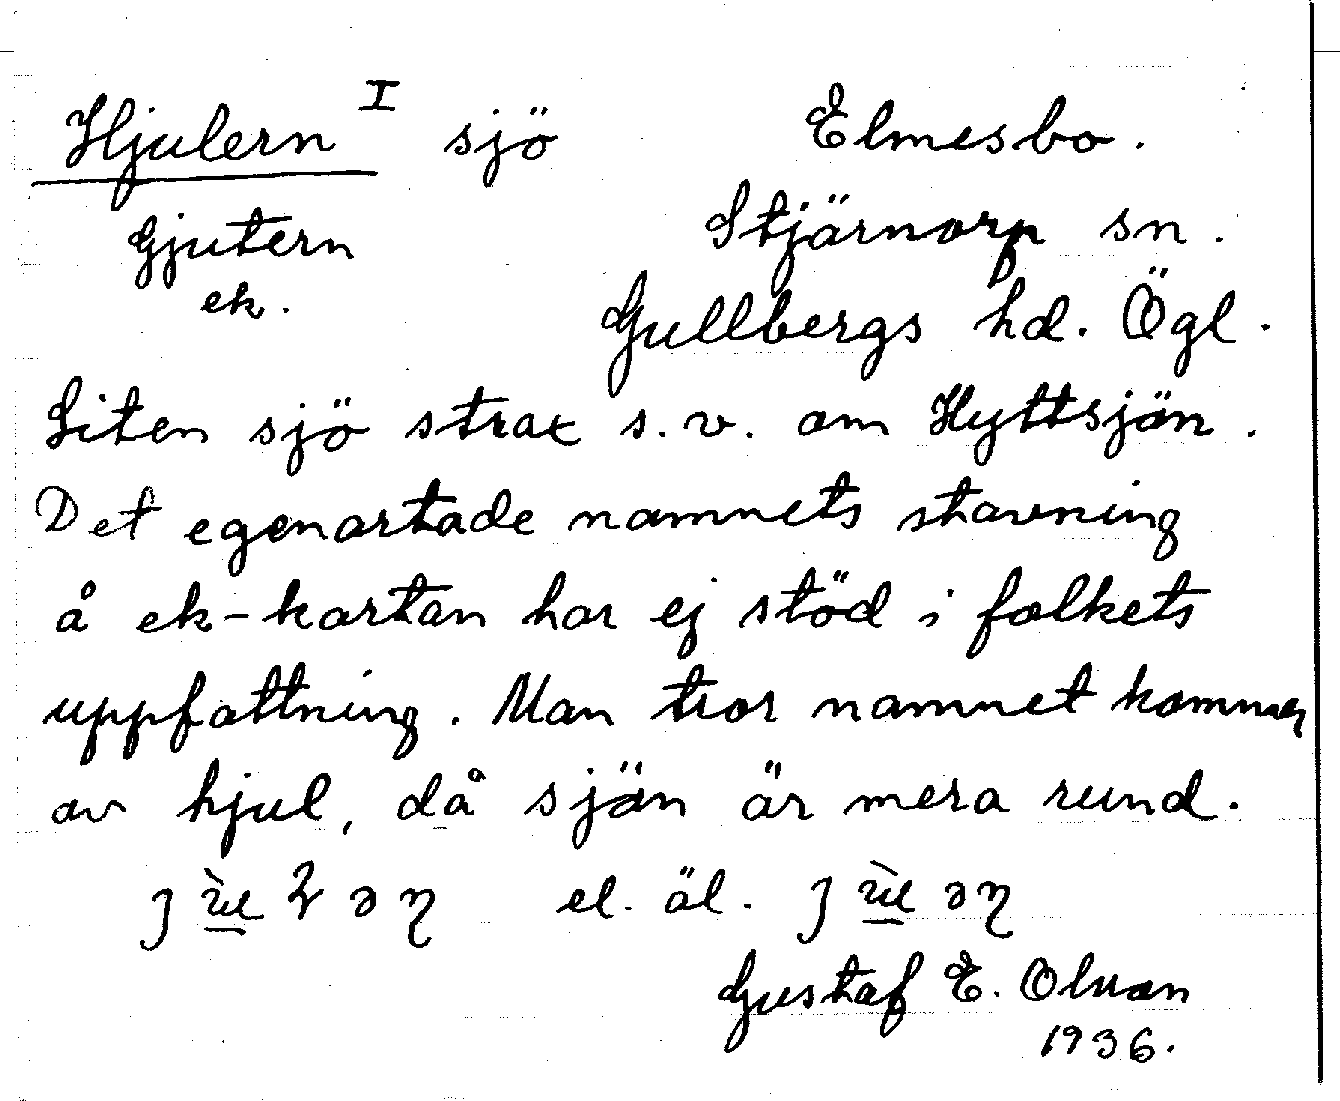 Hjulern I sjö
Gjutern
ek.
Elmesbo.
Stjärnorp sn.
Gullbergs hd. Ögl.
Liten sjö strax s.v. om Hyttsjön.
Det egenartade namnets stavning
å ek-kartan har ej stöd i folkets
uppfattning. Man tror namnet kommer
av hjul, då sjön är mera rund.
el. äl.
Gustaf E. Olsson
1936.